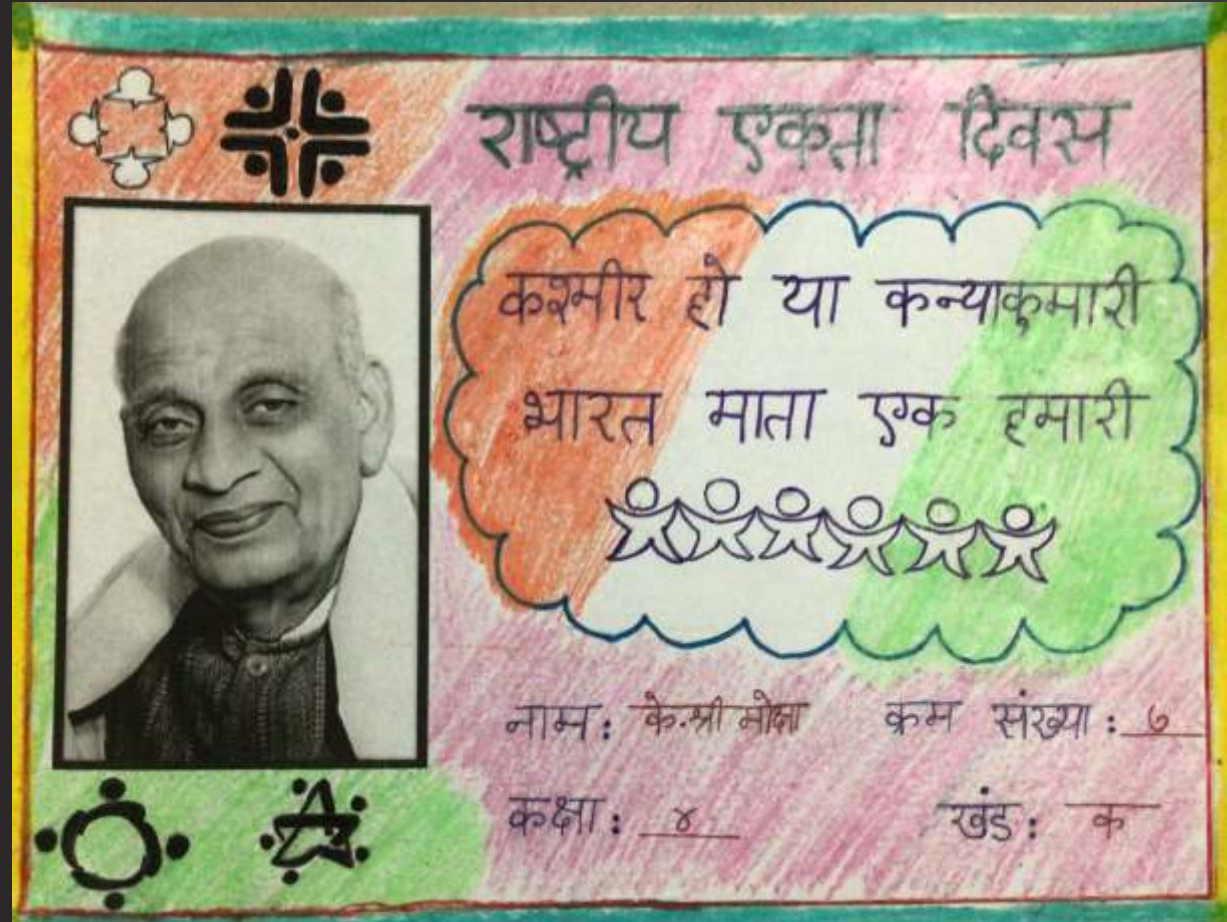 राष्ट्रीय एकता दिवस
कश्मीर हो या कन्याकुमारी
भारत माता एक हमारी
नाम: के.श्री मोक्षा क्रम संख्या: ७
कक्षा: ४ खंड: क